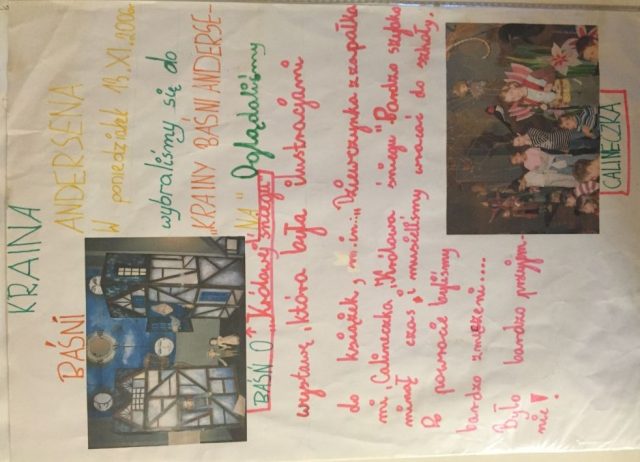 KRAINA
BAŚNI
ANDERSENA
W poniedziałek 13.XI.2006r
wybraliśmy się do
„KRAINY BAŚNI ANDERSE-
NA" Oglądaliśmy
BAŚŃ O „Królowej śniegu"
wystawę, która była ilustracjami
do książek, m.in. „Dziewczynka z zapałka
mi", Calineczka, „Królowa śniegu" Bardzo szybko
minął czas i musieliśmy wracać do szkoły.
Po powrocie byliśmy
bardzo zmęczeni....
Było bardzo przyjem-
nie!
CALINECZKA